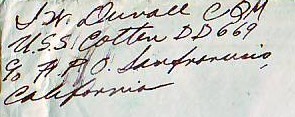 J.W. Duvall CQM
U.S.S. Cotten DD669
c/o F.P.O. Sanfrancisco,
California